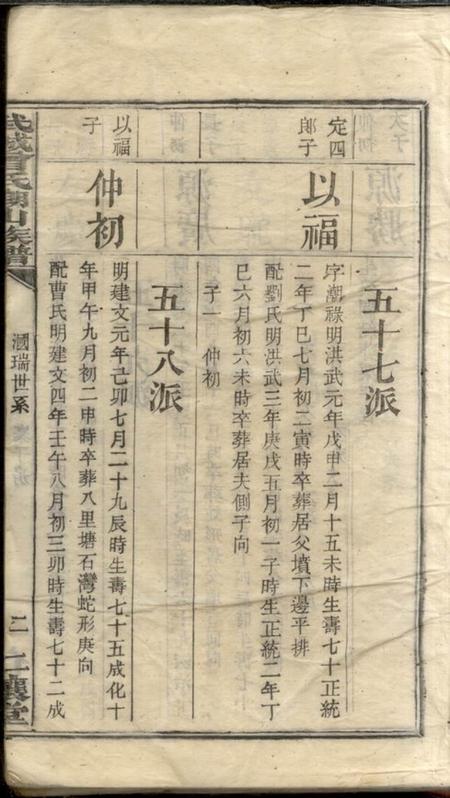 五十七派
定四
郎子
以福
字潮祿明洪武元年戊申二月十五未時生壽七十正統
二年丁巳七月初二寅時卒葬居父墳下邊平排
配劉氏明洪武三年庚戌五月初一子時生正統二年丁
巳六月初六未時卒葬居夫側子向
子一 仲初
五十八派
以福
子
仲初
明建文元年己卯七月二十九辰時生壽七十五成化十
年甲午九月初二申時卒葬八里塘石灣蛇形庚向
配曹氏明建文四年壬午八月初三卯時生壽七十二成
武城曾氏 山族譜
國瑞世系
二